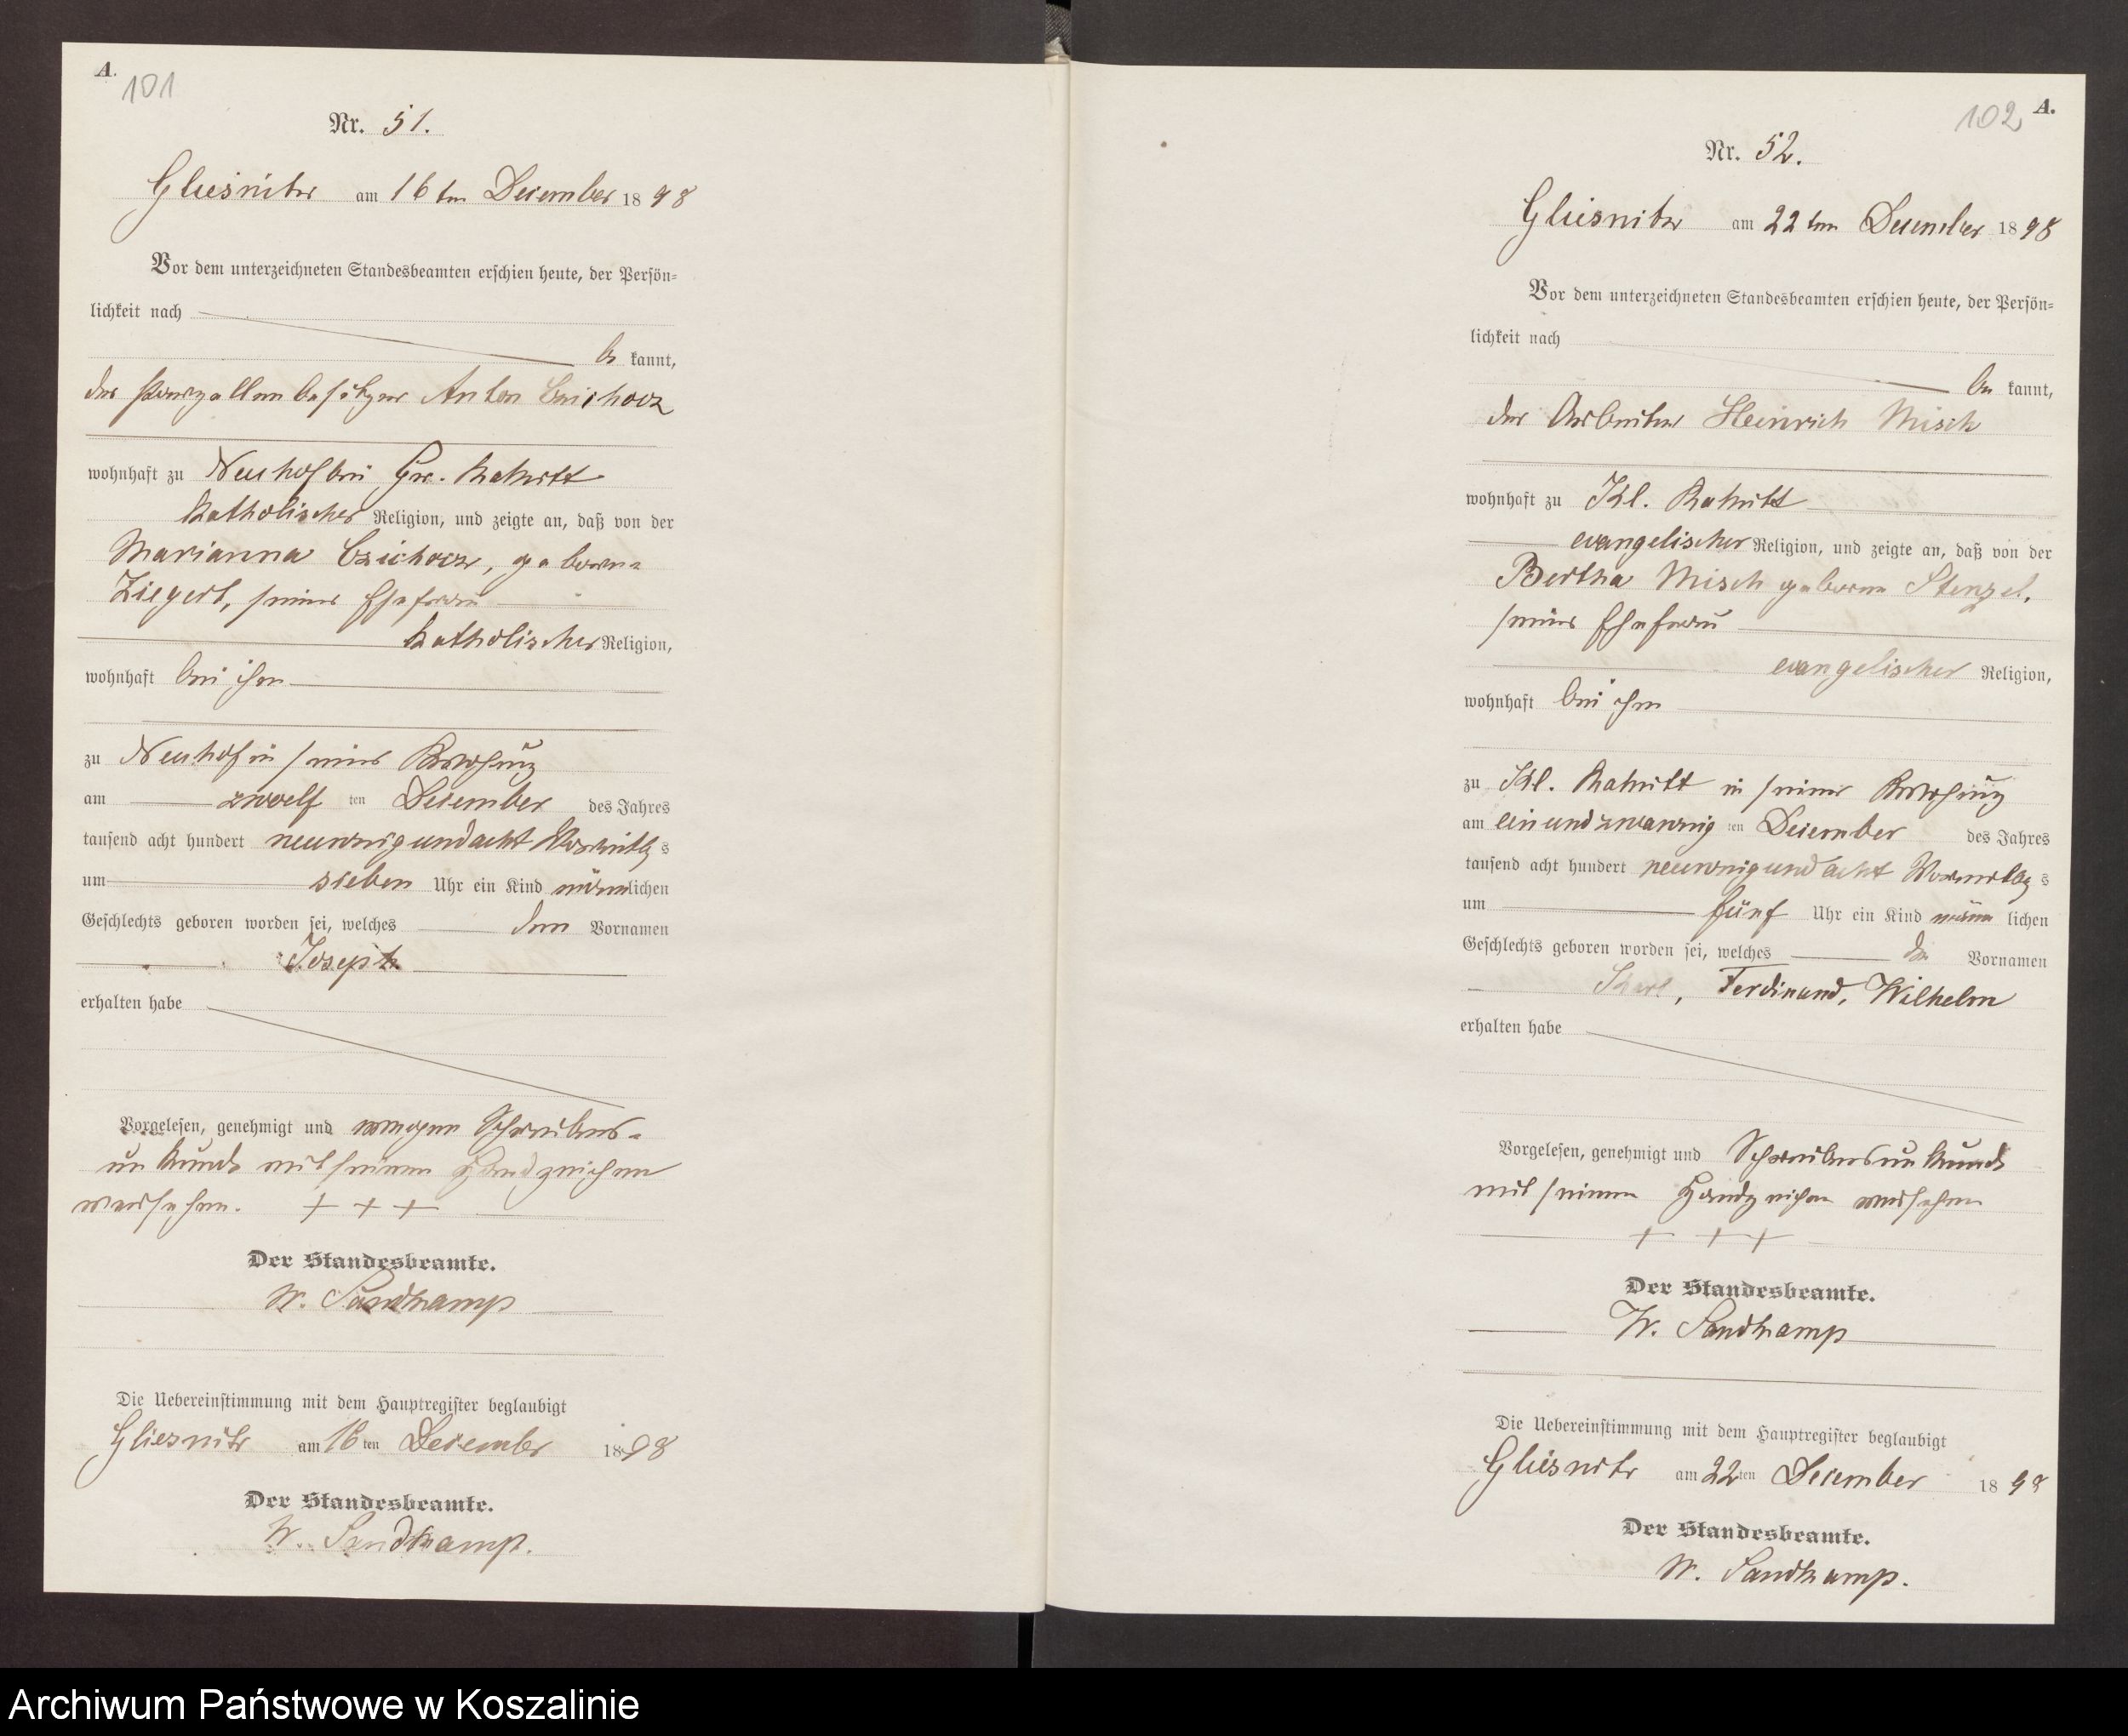 A.
101
Nr. 51.
Gliesnitz am 16 ten December 1898
Vor dem unterzeichneten Standesbeamten erschien heute, der Persön=
lichkeit nach
be kannt,
der Parzellenbesitzer Anton
wohnhaft zu Neuhof bei Gr.
katholischer Religion, und zeigte an, daß von der
Marianna geborene
Ziegert, seiner Ehefrau
katholischer Religion,
wohnhaft bei ihm
zu Neuhof in seiner Wohnung
am zwoelf ten December des Jahres
tausend acht hundert neunzig und acht Vormittags
um sieben Uhr ein Kind männlichen
Geschlechts geboren worden sei, welches den Vornamen
Joseph
erhalten habe
Vorgelesen, genehmigt und wegen Schreibens-
unkunde mit seinem Handzeichen
versehen. + + +
Der Standesbeamte.
W. Sandkamp
Die Uebereinstimmung mit dem Hauptregister beglaubigt
Gliesnitz am 16 ten December 1898
Der Standesbeamte.
W. Sandkamp.
102 A.
Nr. 52.
Gliesnitz am 22 ten December 1898
Vor dem unterzeichneten Standesbeamten erschien heute, der Persön=
lichkeit nach
be kannt,
der Arbeiter Heinrich Misch
wohnhaft zu Kl.
evangelischer Religion, und zeigte an, daß von der
Bertha Misch geborene Stenzel,
seiner Ehefrau
evangelischer Religion,
wohnhaft bei ihm
zu Kl. in seiner Wohnung
am ein und zwanzig ten December des Jahres
tausend acht hundert neunzig und acht Vormittags
um fünf Uhr ein Kind männ lichen
Geschlechts geboren worden sei, welches die Vornamen
Karl, Ferdinand, Wilhelm
erhalten habe
Vorgelesen, genehmigt und Schreibensunkunde
mit seinem Handzeichen versehen
+ + +
Der Standesbeamte.
W. Sandkamp
Die Uebereinstimmung mit dem Hauptregister beglaubigt
Gliesnitz am 22 ten December 1898
Der Standesbeamte.
W. Sandkamp.
Archiwum Państwowe w Koszalinie